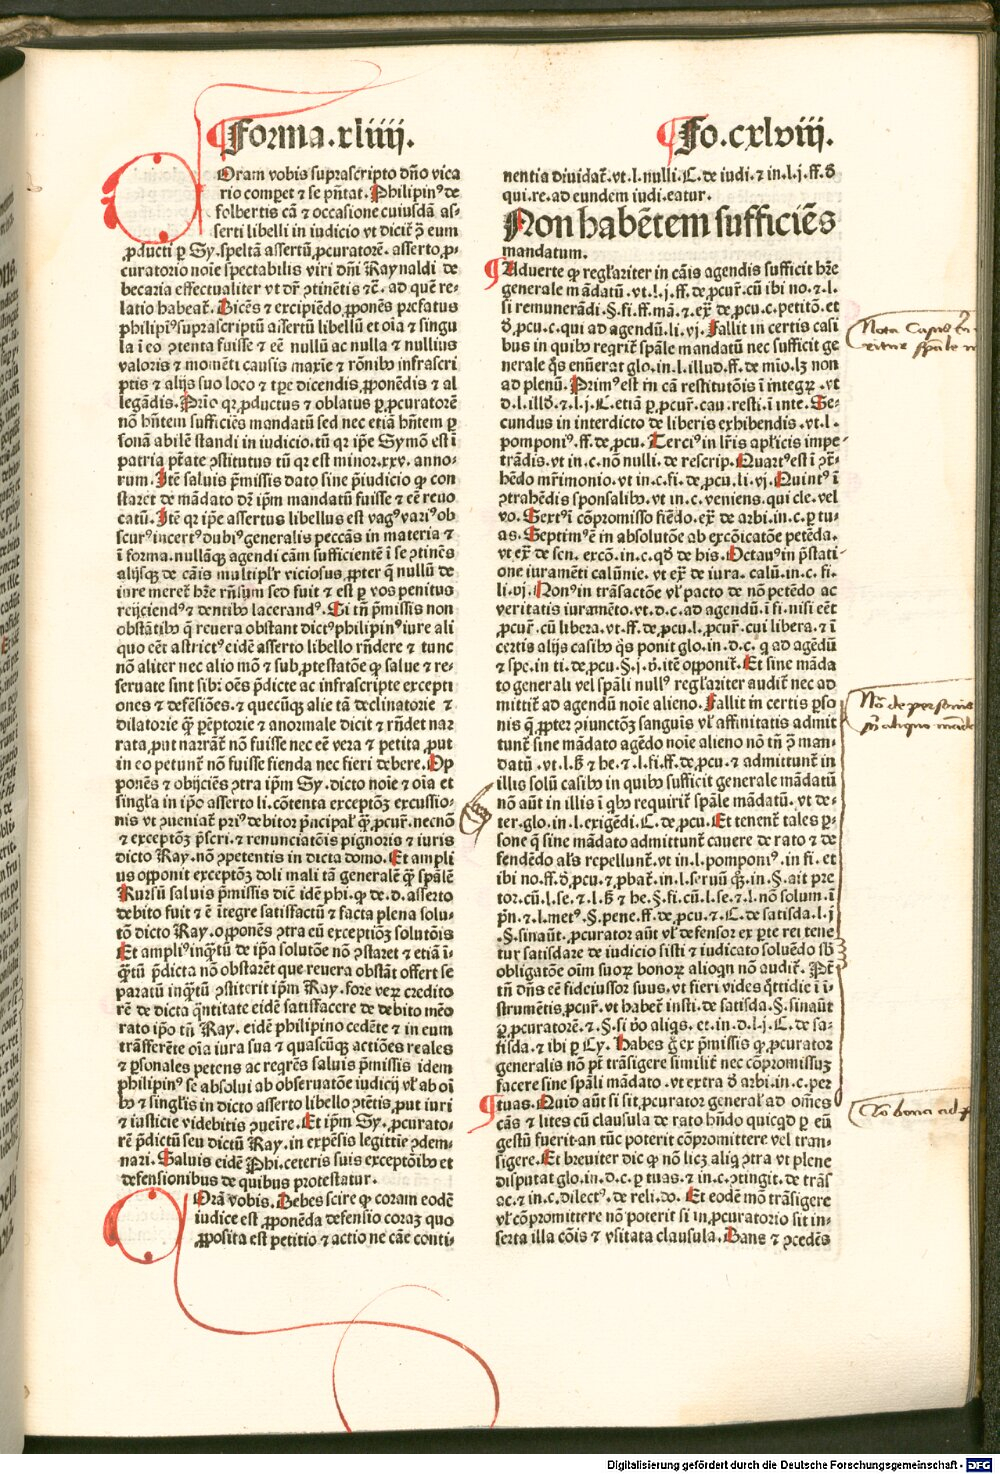 ¶Forma.xliiij.
¶Fo.cxlviij.
COram vobis suprascripto dño vica
rio compet ⁊ se pñtat. Philipinꝰ de
folbertis cā ⁊ occasione cuiusdā as-
serti libelli in iudicio vt dicit᷑ ꝓ eum
ꝓducti ꝑ Sy. speltā assertū ꝓcuratorē. asserto ꝓ-
curatorio noīe spectabilis viri dñi Raynaldi de
becaria effectualiter vt dr̄ ꝯtinētis ⁊c̄. ad quē re-
latio habeat᷑. Dicēs ⁊ excipiēdo ꝓponēs prefatus
philipīꝰ suprascriptū assertū libellū et oīa ⁊ singu
la ī eo ꝯtenta fuisse ⁊ eē nullū ac nulla ⁊ nullius
valoris ⁊ momēti causis maxīe ⁊ rōnibꝰ infrascri
ptis ⁊ alijs suo loco ⁊ tꝑe dicendis ꝓponēdis ⁊ al
legādis. Prīo qꝛ ꝓductus ⁊ oblatus ꝑ ꝓcuratorē
nō hñtem sufficiēs mandatū sed nec etiā hñtem ꝑ
sonā abilē standi in iudicio. tū qꝛ ip̄e Symō est ī
patria ptāte ꝯstitutus tū qꝛ est minor. xxv. anno-
rum. Itē saluis p̄missis dato sine p̄iudicio ꝙ con
staret de mādato dr̄ ip̄m mandatū fuisse ⁊ eē reuo
catū. Itē qꝛ ip̄e assertus libellus est vagꝰ variꝰ ob
scurꝰ incertꝰ dubiꝰ generalis peccās in materia ⁊
ī forma. nullāqꝫ agendi cām sufficientē ī se ꝯtinēs
alijsqꝫ de cāis multipl'r viciosus ꝓpter q̄ nullū de
iure meret᷑ hr̄e rñsum sed fuit ⁊ est ꝑ vos penitus
reijciendꝰ ⁊ dentibꝰ lacerandꝰ. Si tñ p̄missis non
obstātibꝰ q̄ reuera obstant dictꝰ philipinꝰ iure ali
quo eēt astrictꝰ eidē asserto libello rñdere ⁊ tunc
nō aliter nec alio mō ⁊ sub ꝓtestatōe ꝙ salue ⁊ re-
seruate sint sibi oēs p̄dicte ac infrascripte excepti
ones ⁊ defēsiōes. ⁊ quecūqꝫ alie tā declinatorie ⁊
dilatorie q̄ꝫ ꝑēptorie ⁊ anormale dicit ⁊ rñdet nar
rata, put narrāt᷑ nō fuisse nec eē vera ⁊ petita ꝓut
in eo petunt᷑ nō fuisse fienda nec fieri debere. Op
ponēs ⁊ obijciēs ꝯtra ip̄m Sy. dicto noīe ⁊ oīa et
singl'a in ip̄o asserto li. cōtenta exceptōꝫ excussio-
nis vt ꝯueniat᷑ priꝰ debitor p̄ncipal' q̄ꝫ ꝓcur̄. necnō
⁊ exceptōꝫ p̄scri. ⁊ renunciatōis pignoris ⁊ iuris
dicto Ray. nō ꝯpetentis in dicta domo. Et ampli
us opponit exceptōꝫ doli mali tā generalē q̄ꝫ sp̄alē
Rursū saluis p̄missis dic̄ idē phi. ꝙ de. d. asserto
debito fuit ⁊ ē ītegre satisfactū ⁊ facta plena solu-
tō dicto Ray. opponēs ꝯtra eū exceptiōꝫ solutōis
Et ampliꝰ inq̄tū de ip̄a solutōe nō ꝯstaret ⁊ etiā ī-
q̄tū p̄dicta nō obstarēt que reuera obstāt offert se
paratū inq̄tū ꝯstiterit ip̄m Ray. fore verꝝ credito
rē de dicta q̄ntitate eidē satisfacere de debito mēo
rato ip̄o tñ Ray. eidē philipino cedēte ⁊ in eum
trāsferēte oīa iura sua ⁊ quascūqꝫ actiōes reales
⁊ ꝑsonales petens ac reqrēs saluis p̄missis idem
philipinꝰ se absolui ab obseruatōe iudicij vl' ab oī
bꝰ ⁊ singl'is in dicto asserto libello ꝯtētis ꝓut iuri
⁊ iusticie videbitis ꝯueīre. Et ip̄m Sy. ꝓcurato-
rē p̄dictū seu dictū Ray. in expēsis legittie ꝯdem-
nari. Saluis eidē Phi. ceteris suis exceptōibꝰ et
defensionibus de quibus protestatur.
COrā vobis. Debes scire ꝙ coram eodē
iudice est ꝓponēda defensio coraꝫ quo
ꝓposita est petitio ⁊ actio ne cāe conti-
nentia diuidat᷑. vt. l. nulli. C. de iudi. ⁊ in. l. j. ff. ð
qui. re. ad eundem iudi. eatur.
Non habētem sufficiēs
mandatum.
¶Aduerte ꝙ regl'ariter in cāis agendis sufficit hr̄e
generale mādatū. vt. l. j. ff. de ꝓcur̄. cū ibi no. ⁊. l.
si remunerādi. §. fi. ff. mā. ⁊ ex̄. de ꝓcu. c. petitō. et
ð ꝓcu. c. qui ad agendū. li. vj. Fallit in certis casi
bus in quibꝰ reqrit᷑ sp̄ale mādatū nec sufficit ge
nerale q̄s enūerat glo. in. l. illud. ff. de mīo. lꝫ non
ad plenū. Primꝰ est in cā restitutōis ī integꝝ. vt
d. l. illð. ⁊. l. j. C. etiā ꝑ ꝓcur̄. cau. resti. ī inte. Se-
cundus in interdicto de liberis exhibendis. vt. l.
pomponiꝰ. ff. de ꝓcu. Terciꝰ in lr̄is apl'icis impe-
trādis. vt in. c. nō nulli. de rescrip. Quartꝰ est ī ꝯt̄-
hēdo mr̄imonio. vt in. c. fi. de ꝓcu. li. vj. Quintꝰ ī
ꝯtrahēdis sponsalibꝰ. vt in. c. veniens. qui cle. vel
vo. Sextꝰ ī cōpromisso fiēdo. ex̄. de arbi. in. c. ꝑ tu-
as. Septimꝰ ē in absolutōe ab excōicatōe petēda.
vt ex̄. de sen. excō. in. c. qð de his. Octauꝰ in p̄stati-
one iuramēti calūnie. vt ex̄. de iura. calū. in. c. fi.
li. vj. Nonꝰ in trāsactōe vl' pacto de nō petēdo ac
veritatis iuramēto. vt. d. c. ad agendū. ī fi. nisi eēt
ꝓcur̄. cū libera. vt. ff. de ꝓcu. l. ꝓcur̄. cui libera. ⁊ ī
certis alijs casibꝰ q̄s ponit glo. in. d. c. q ad agēdū
⁊ spe. in ti. de ꝓcu. §. j. v̄. itē opponit᷑. Et sine māda
to generali vel sp̄ali nullꝰ regl'ariter audit᷑ nec ad
mittit᷑ ad agendū noīe alieno. Fallit in certis ꝑso
nis q̄ ꝓpter ꝯiunctōꝫ sanguīs vl' affinitatis admit
tunt᷑ sine mādato agēdo noīe alieno nō tñ ꝓ man-
datū. vt. l. ꝫ ⁊ he. ⁊. l. fi. ff. de ꝓcu. ⁊ admittunt᷑ in
illis solū casibꝰ in quibꝰ sufficit generale mādatū
nō aūt in illis ī qbꝰ requirit᷑ sp̄ale mādatū. vt de-
ter. glo. in. l. exigēdi. C. de ꝓcu. Et tenent᷑ tales ꝑ-
sone q̄ sine mādato admittunt᷑ cauere de rato ⁊ de
fendēdo al's repellunt᷑. vt in. l. pomponiꝰ. in fi. et
ibi no. ff. ð ꝓcu. ⁊ ꝓbat᷑. in. l. seruū qꝫ. in. §. ait pre
tor. cū. l. se. ⁊. l. ꝫ ⁊ he. §. fi. cū. l. se. ⁊. l. nō solum. ī
p̄n. ⁊. l. metꝰ. §. pene. ff. de ꝓcu. ⁊. C. de satisda. l. j
. §. sinaūt. ꝓcurator aūt vl' defensor ex ꝑte rei tene
tur satisdare de iudicio sisti ⁊ iudicato soluēdo sb̄
obligatōe oīm suoꝝ bonoꝝ alioqn nō audit᷑. Pt̄
tñ dñs eē fideiussor suus. vt fieri vides q̄ttidie ī i-
strumētis ꝓcur̄. vt habet᷑ insti. de satisda. §. sinaūt
ꝑ ꝓcuratorē. ⁊. §. si v̄o aliqs. et. in. d. l. j. C. de sa-
tisda. ⁊ ibi ꝑ Cy. Habes g̊ ex p̄missis ꝙ ꝓcurator
generalis nō pt̄ trāsigere similit᷑ nec cōpromissuꝫ
facere sine sp̄ali mādato. vt extra ð arbi. in. c. per
¶tuas. Quid aūt si sit ꝓcurator general' ad om̄es
cās ⁊ lites cū clausula de rato hñdo quicqð ꝑ eū
gestū fuerit. an tūc poterit cōpromittere vel tran-
sigere. Et breuiter dic ꝙ nō licꝫ aliq ꝯtra vt plene
disputat glo. in. d. c. ꝑ tuas. ⁊ in. c. ꝯtingit. de trās
ac. ⁊ in. c. dilectꝰ. de reli. do. Et eodē mō trāsigere
vl' cōpromittere nō poterit si in ꝓcuratorio sit in-
serta illa cōis ⁊ vsitata clausula. Dans ⁊ ꝯcedēs
Nota Casus
ritur sp̄ale
Nō de personis
aliquo
bona ad
Digitalisierung gefördert durch die Deutsche Forschungsgemeinschaft - DFG